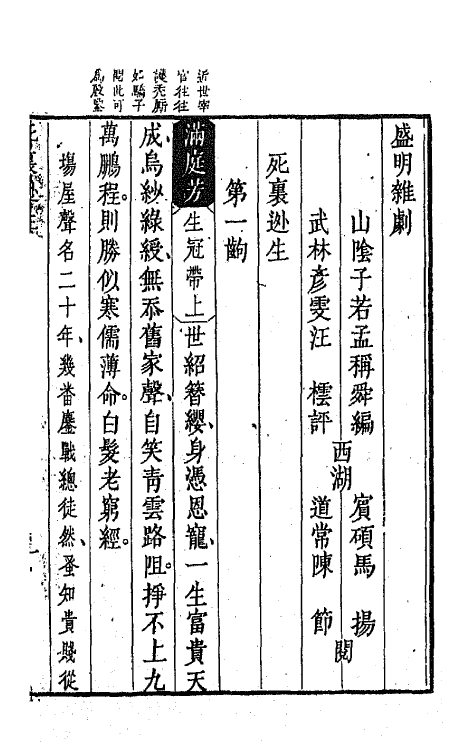 盛明雜劇
山陰子若孟稱舜編
西湖
賓碩馬 揚
武林彥雯汪 橒評
道常陳 節
閱
死裏逃生
第一齣
滿庭芳 生冠帶上 世紹簪纓、身憑恩寵、一生富貴天
成、烏紗綠綬、無忝舊家聲、自笑青雲路阻。掙不上九
萬鵬程。則勝似寒儒薄命。白髮老窮經。
塲屋聲名二十年、幾番鏖戰總徒然、蚤知貴賤從
近世宰
官往往
護禿厮
如驕子
閱此可
爲殷鑒